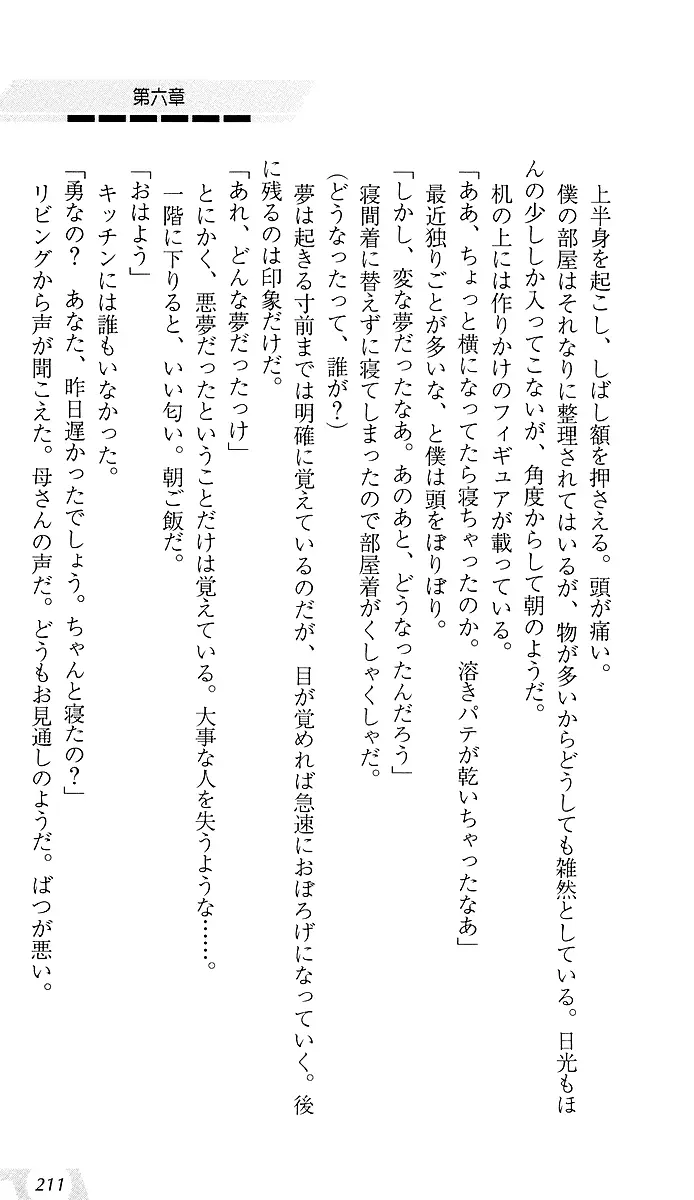 第六章
　上半身を起こし、しばし額を押さえる。頭が痛い。
　僕の部屋はそれなりに整理されてはいるが、物が多いからどうしても雑然としている。日光もほ
んの少ししか入ってこないが、角度からして朝のようだ。
　机の上には作りかけのフィギュアが載っている。
「ああ、ちょっと横になってたら寝ちゃったのか。溶きパテが乾いちゃったなあ」
　最近独りごとが多いな、と僕は頭をぽりぽり。
「しかし、変な夢だったなあ。あのあと、どうなったんだろう」
　寝間着に替えずに寝てしまったので部屋着がくしゃくしゃだ。
（どうなったって、誰が？）
　夢は起きる寸前までは明確に覚えているのだが、目が覚めれば急速におぼろげになっていく。後
に残るのは印象だけだ。
「あれ、どんな夢だったっけ」
　とにかく、悪夢だったということだけは覚えている。大事な人を失うような……。
　一階に下りると、いい匂い。朝ご飯だ。
「おはよう」
　キッチンには誰もいなかった。
「勇なの？　あなた、昨日遅かったでしょう。ちゃんと寝たの？」
　リビングから声が聞こえた。母さんの声だ。どうもお見通しのようだ。ばつが悪い。
211